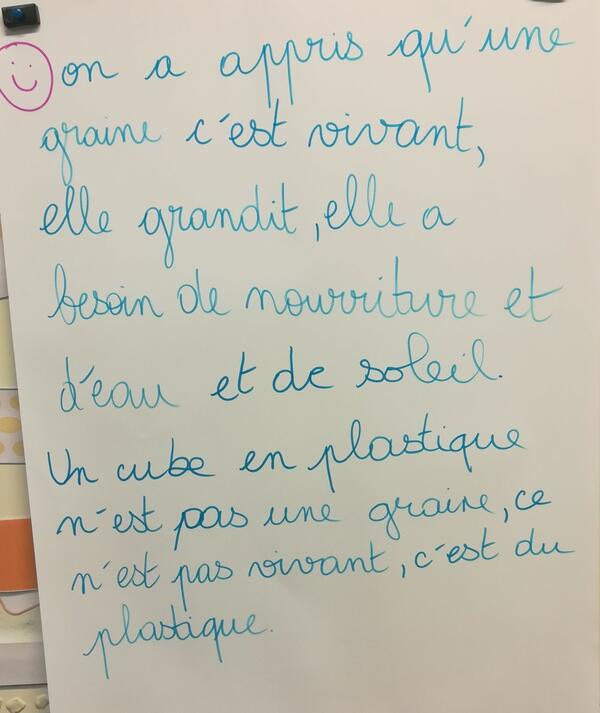 on a appris qu'une
graine c'est vivant,
elle grandit, elle a
besoin de nourriture et
d'eau et de soleil.
Un cube en plastique
n'est pas une graine, ce
n'est pas vivant, c'est du
plastique.